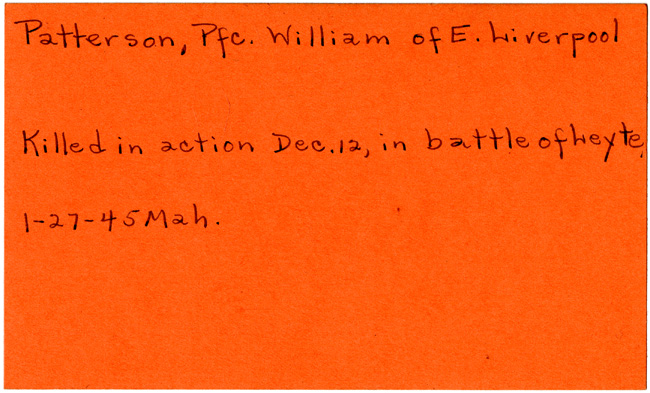 Patterson, Pfc. William of E. Liverpool
Killed in action Dec. 12, in battle of Leyte,
1-27-45 Mah.